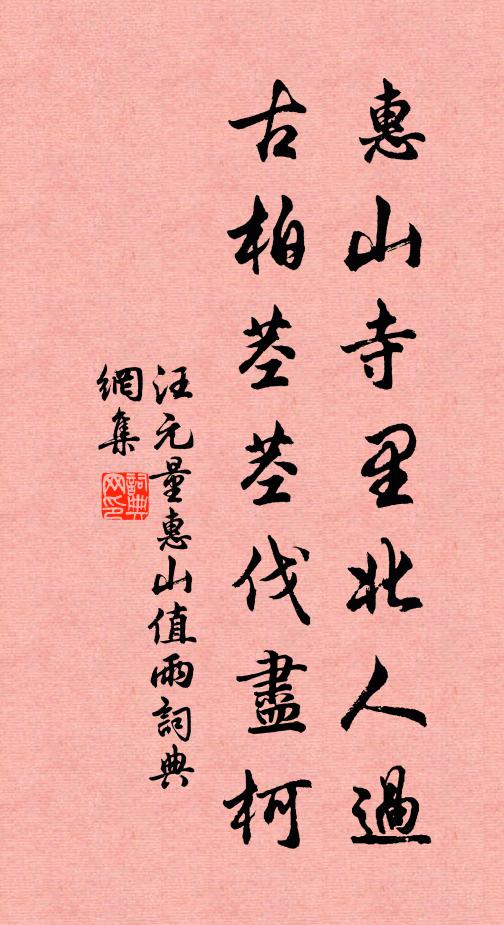 惠山寺里北人過
古柏莖莖伐盡柯
汪元量惠山值雨詞典
網集
詞典
网印